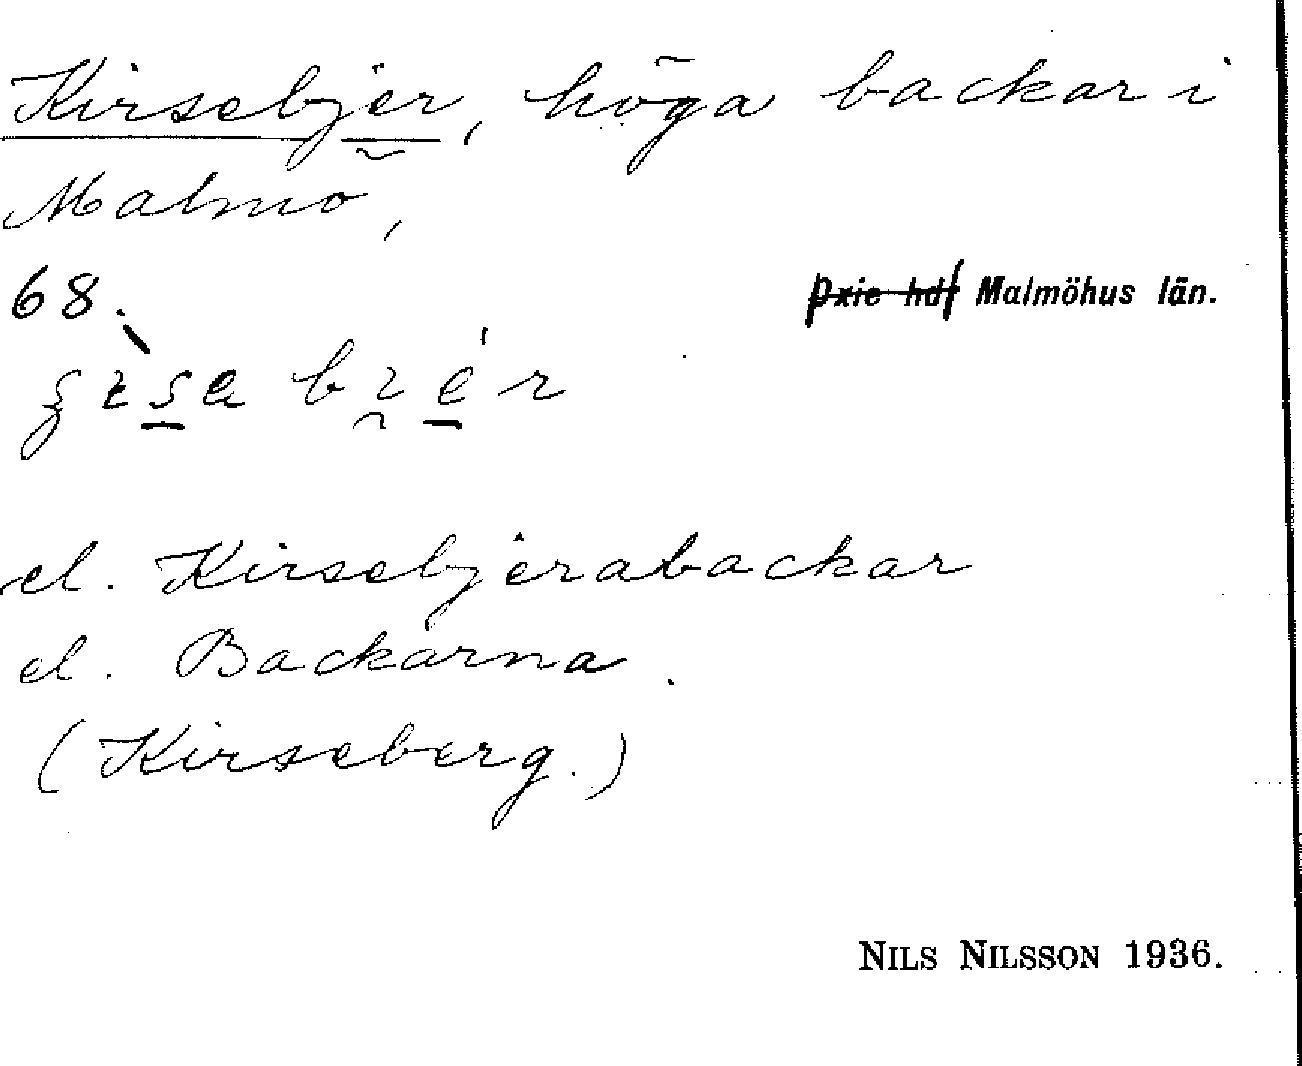 Kirsebjer, höga backar i
Malmö,
68. Oxie hd Malmöhus län.
el. Kirsebjerabackar
el. Backarna.
(Kirseberg.)
NILS NILSSON 1936.